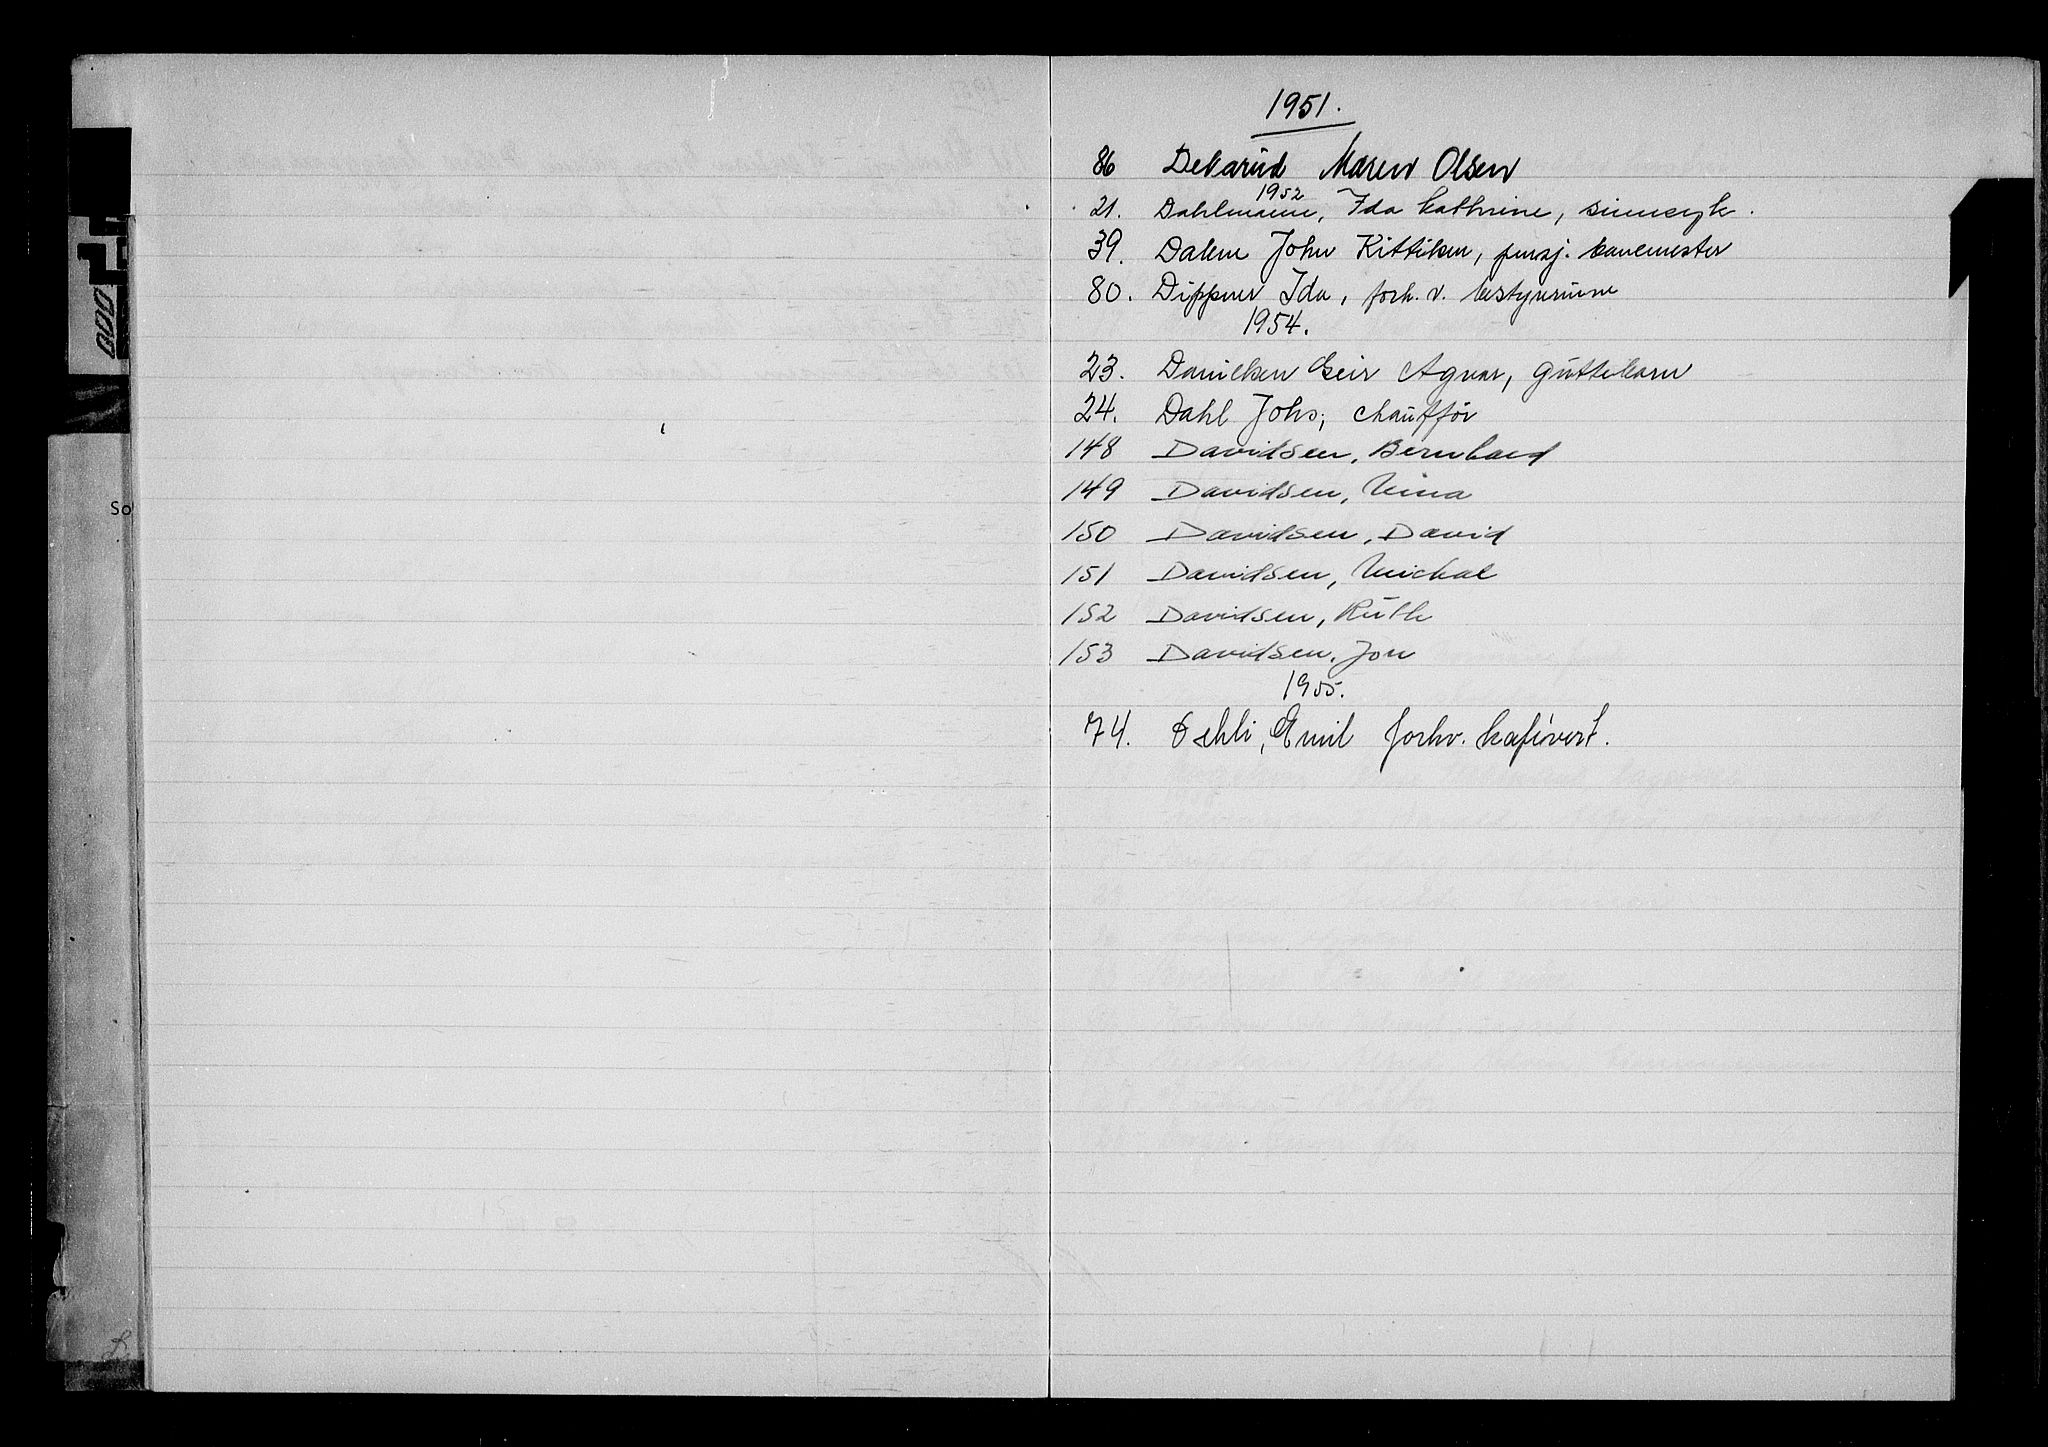 1951.
86 Debarud Maren Olsen
1952
21. Dahlmann, Ida Kathrine, sinnsyk.
39. Dalen John Kittilsen, pensj. banemester
80. Dippner Ida, forh. v. bestyrerinne
1954.
23. Danielsen Geir Agnar, guttebarn
24. Dahl Johs; chaufför
148 Davidsen, Bernhard
149 Davidsen, Mina
150 Davidsen, David
151 Davidsen, Michal
152 Davidsen, Ruth
153 Davidsen, Jon
1955.
74. Dehli, Emil forhv. kafévert.
So